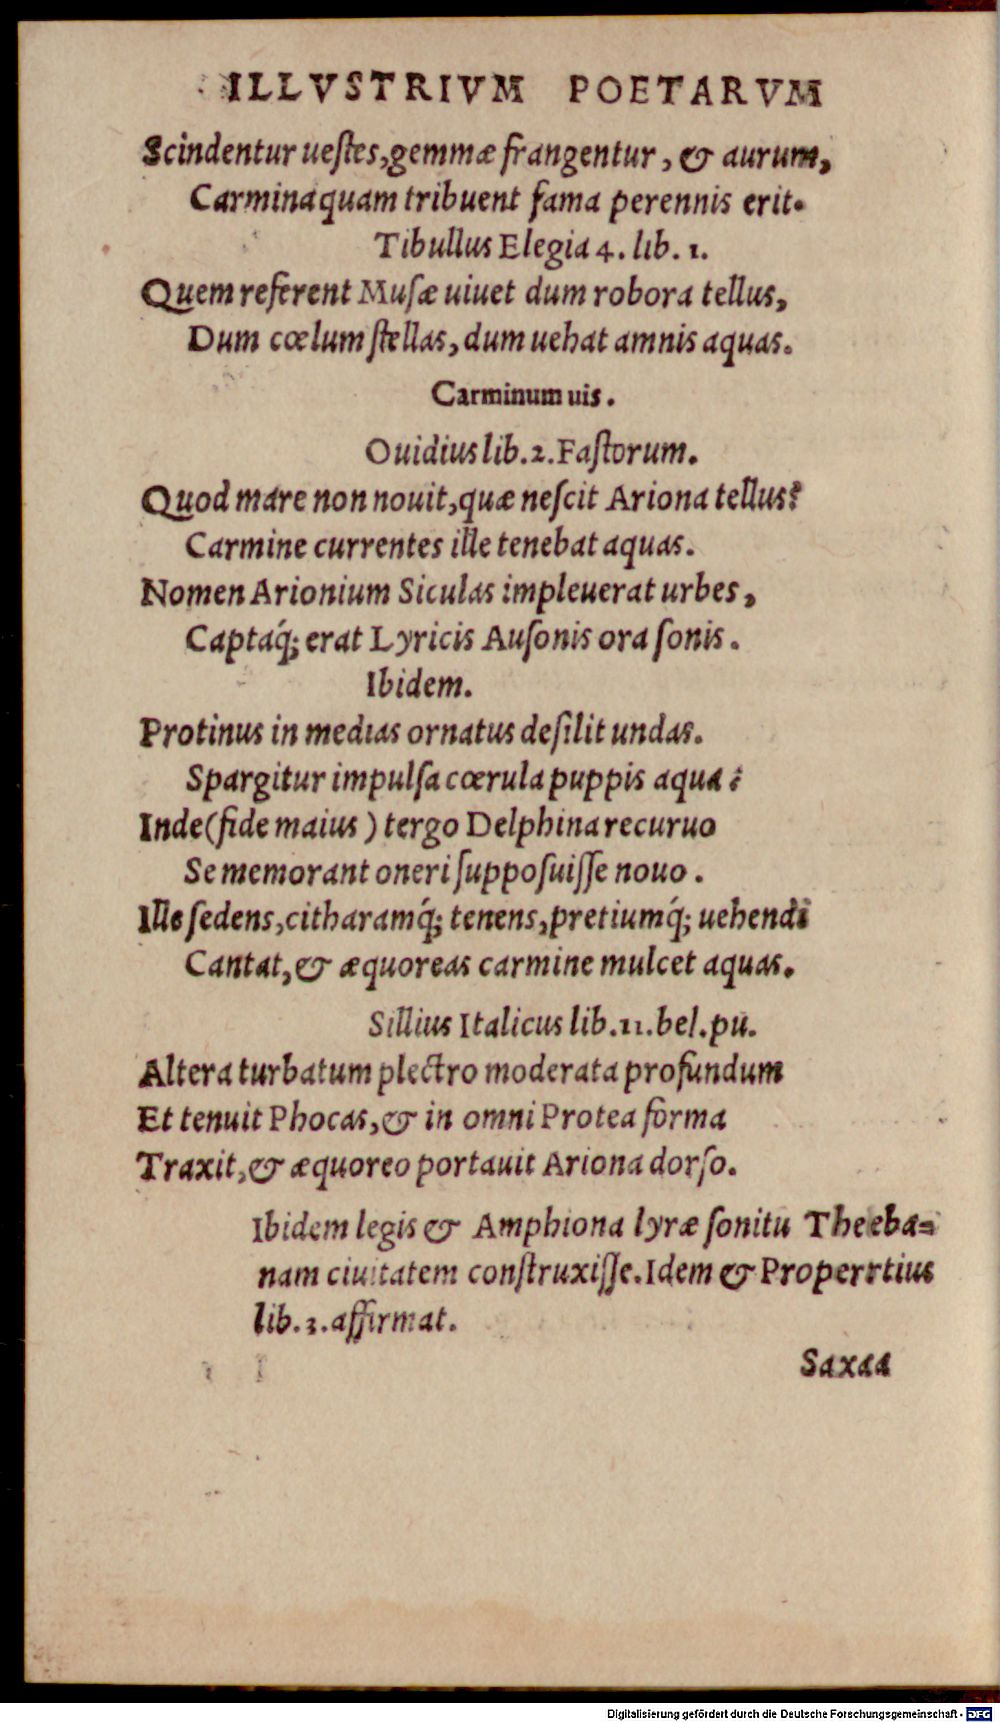 ILLVSTRIVM POETARVM
Scindentur ueſtes, gemmæ frangentur, & aurum,
Carmina quam tribuent fama perennis erit.
Tibullus Elegia 4. lib. 1.
Quem referent Muſæ uiuet dum robora tellus,
Dum cœlum ſtellas, dum uehat amnis aquas.
Carminum uis.
Ouidius lib. 2. Faſtorum.
Quod mare non nouit, quæ neſcit Ariona tellus?
Carmine currentes ille tenebat aquas.
Nomen Arionium Siculas impleuerat urbes,
Captaq́; erat Lyricis Auſonis ora ſonis.
Ibidem.
Protinus in medias ornatus deſilit undas.
Spargitur impulſa cœrula puppis aqua:
Inde (fide maius) tergo Delphina recuruo
Se memorant oneri ſuppoſuiſſe nouo.
Ille ſedens, citharamq́; tenens, pretiumq́; uehendi
Cantat, & æquoreas carmine mulcet aquas.
Sillius Italicus lib. 11. bel. pu.
Altera turbatum plectro moderata profundum
Et tenuit Phocas, & in omni Protea forma
Traxit, & æquoreo portauit Ariona dorſo.
Ibidem legis & Amphiona lyræ ſonitu Theeba=
nam ciuitatem conſtruxiſſe. Idem & Properrtius
lib. 3. affirmat.
Saxaa
Digitalisierung gefördert durch die Deutsche Forschungsgemeinschaft - DFG